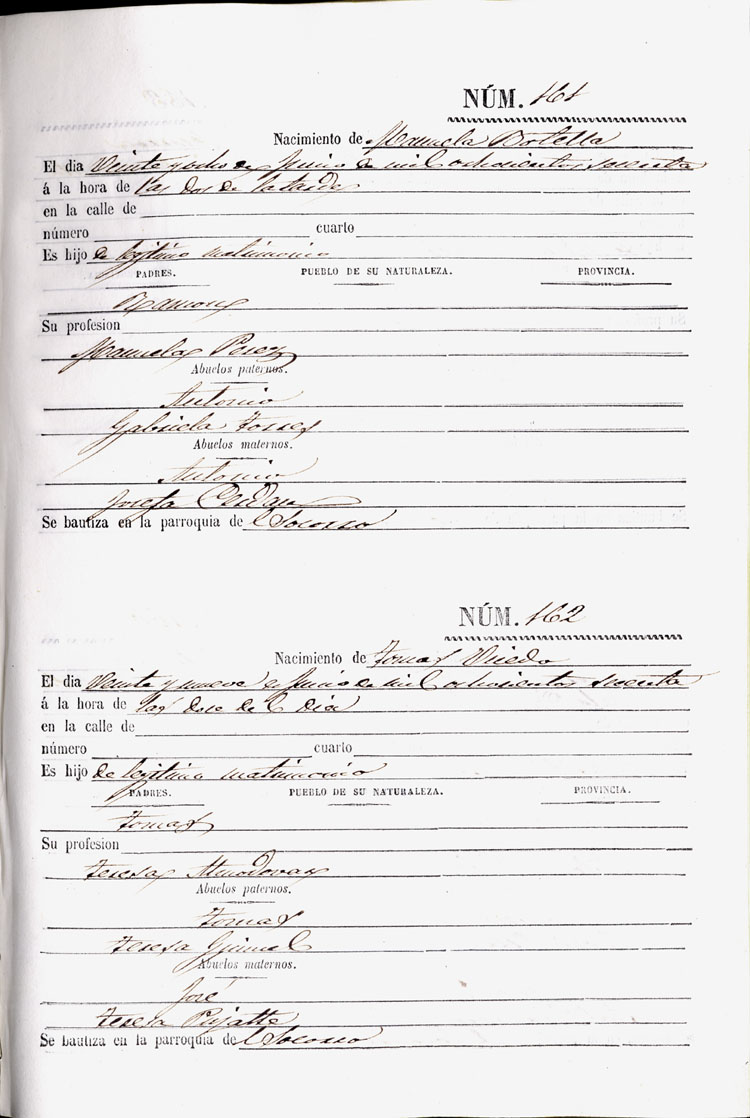 NÚM. 161
Nacimiento de Manuela Botella
El dia veinte y ocho de Junio de mil ochosientos sesenta
á la hora de las dos de la tarde
en la calle de
número cuarto
Es hijo de legitimo matrimonio
PADRES. PUEBLO DE SU NATURALEZA. PROVINCIA.
Ramon
Su profesion
Manuela Perez
Abuelos paternos.
Antonio
Gabriela Torres
Abuelos maternos.
Antonio
Josefa
Se bautiza en la parroquia de l Socorro
NÚM. 162
Nacimiento de Tomas Oviedo
El dia veinte y nueve de Junio de mil ochosientos sesenta
á la hora de las dose de el Dia
en la calle de
número cuarto
Es hijo de legitimo matrimonio
PADRES. PUEBLO DE SU NATURALEZA. PROVINCIA.
Tomas
Su profesion
Teresa Almodovar
Abuelos paternos.
Tomas
Teresa
Abuelos maternos.
José
Teresa Pujalte
Se bautiza en la parroquia de l Socorro